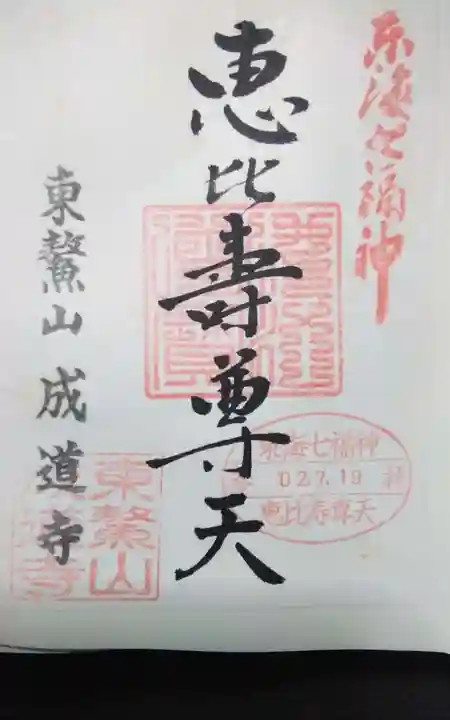 東海七福神
恵比壽尊天
東鰲山 成道寺
東海七福神
027.19
恵比寿尊天
東鰲山
道寺